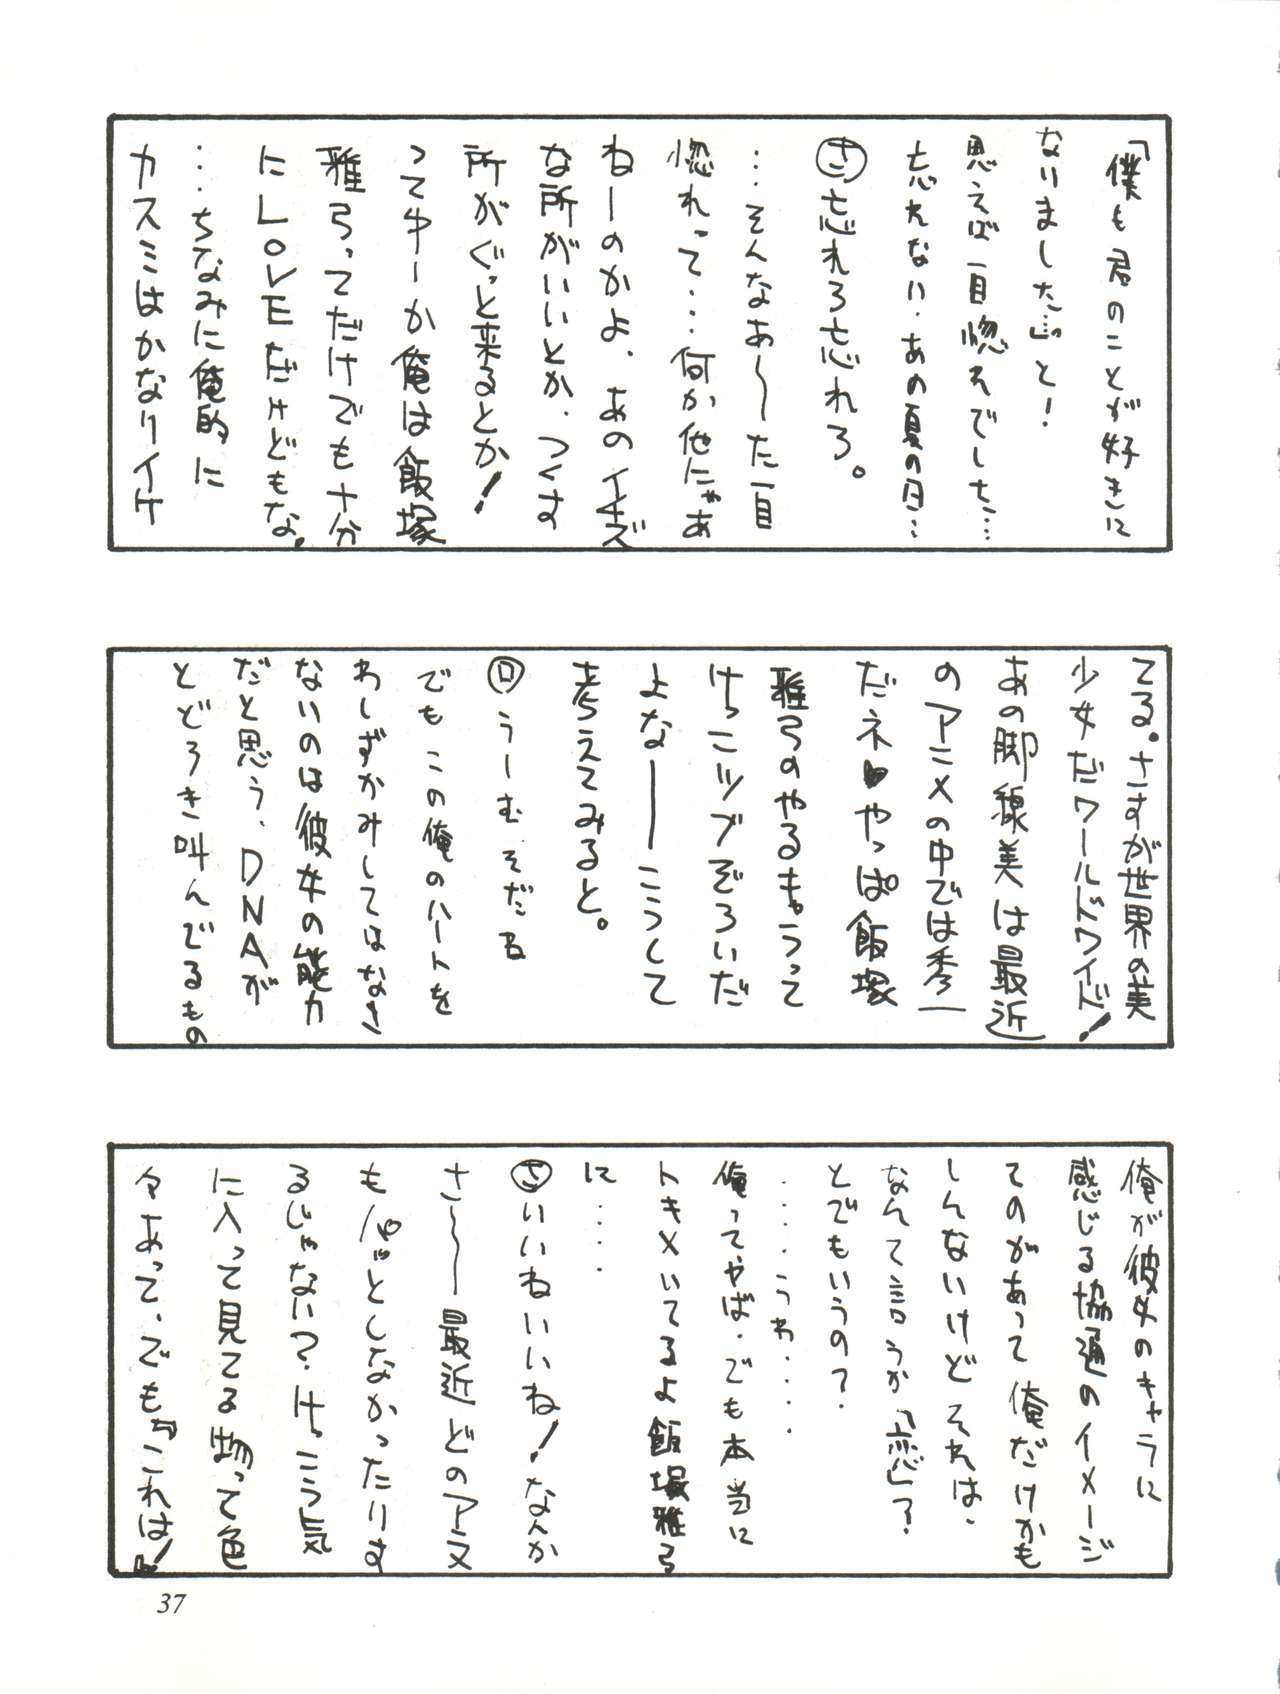 「僕も君のことが好きに
なりました…。」と!
思えば一目惚れでした…
忘れない、あの夏の日…
(さ)忘れろ忘れろ。
…そんなあ〜た一目
惚れって…何か他にゃあ
ねーのかよ、あのイキズ
な所がいいとか、つくす
所がぐっと来るとか!
ってゆーか俺は飯塚
雅弓ってだけでも十分
にLOVEだけどもな。
…ちなみに俺的に
カスミはかなりイケ
てる。さすが世界の美
少女だワールドワイド!
あの脚線美は最近
のアニメの中では秀一
だネ♥やっぱ飯塚
雅弓のやるキャラって
けっこツブぞろいだ
よなーーこうして
考えてみると。
(ロ)うーむそだね
でもこの俺のハートを
わしずかみしてはなさ
ないのは彼女の能力
だと思う、DNAが
とどろき叫んでるもの
俺が彼女のキャラに
感じる協通のイメージ
てのがあって俺だけかも
しんないけどそれは、
なんて言うか「恋」?
とでもいうの?
……うわ……
俺ってやば、でも本当に
トキメいてるよ飯塚雅弓
に……
(さ)いいねいいね!なんか
さ〜〜最近どのアニメ
もパッとしなかったりす
るじゃない?けっこう気
に入って見てる物って色
々あって、でも『これは!』
37